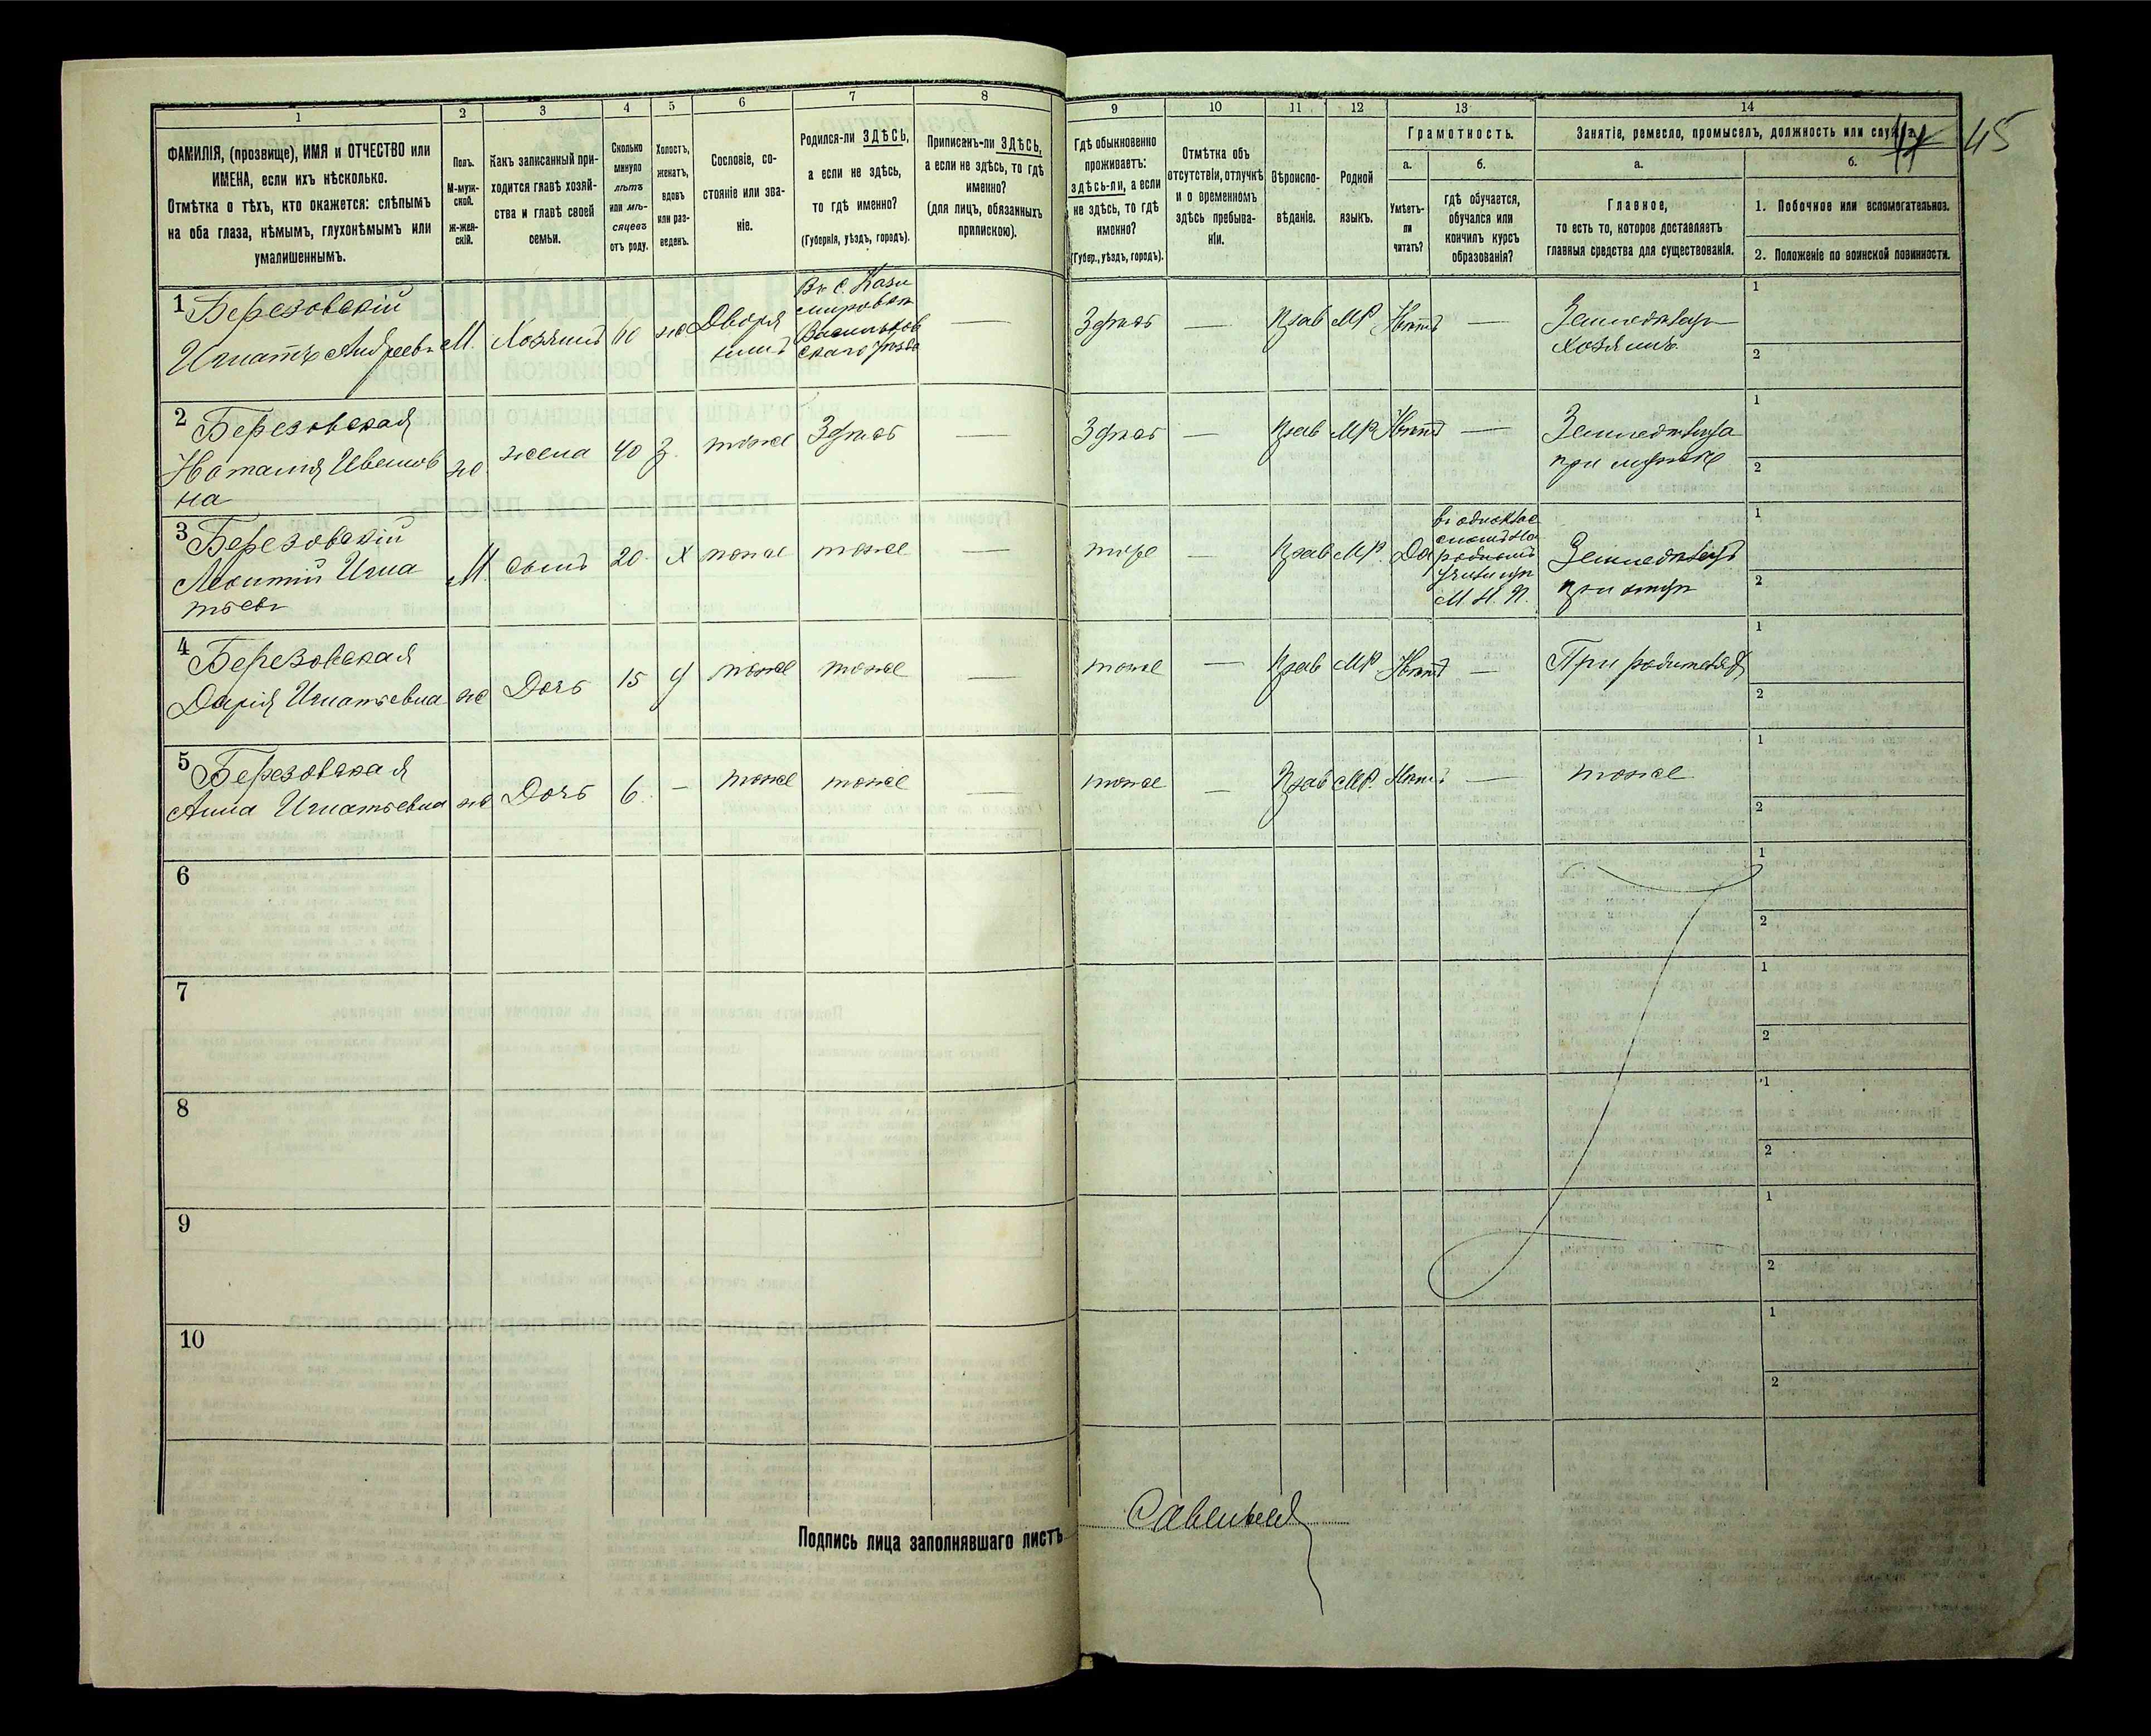 1
2
3
4
5
6
7
8
9
10
11
12
13
14
ФАМИЛІЯ, (прозвище), ИМЯ и ОТЧЕСТВО или
ИМЕНА, если ихъ нѣсколько.
Отмѣтка о тѣхъ, кто окажется: слѣпымъ
на оба глаза, нѣмымъ, глухонѣмымъ или
умалишеннымъ.
Полъ.
М-муж-
ской.
Ж-жен-
скій.
Какъ записанный при-
ходится главѣ хозяй-
ства и главѣ своей
семьи.
Сколько
минуло
лѣтъ
или мѣ-
сяцевъ
отъ роду.
Холостъ,
женатъ,
вдовъ
или раз-
веденъ.
Сословіе, со-
стояніе или зва-
ніе.
Родился-ли ЗДѢСЬ,
а если не здѣсь,
то гдѣ именно?
(Губернія, уѣздъ, городъ).
Приписанъ-ли ЗДѢСЬ,
а если не здѣсь, то гдѣ
именно?
(для лицъ, обязанныхъ
припискою).
Гдѣ обыкновенно
проживаетъ:
здѣсь-ли, а если
не здѣсь, то гдѣ
именно?
(Губер., уѣздъ, городъ).
Отмѣтка объ
отсутствіи, отлучкѣ
и о временномъ
здѣсь пребыва-
ніи.
Вѣроиспо-
вѣданіе.
Родной
языкъ.
Грамотность.
а.
Умѣетъ-
ли
читать?
б.
гдѣ обучается,
обучался или
кончилъ курсъ
образованія?
Занятіе, ремесло, промыселъ, должность или служба.
45
а.
Главное,
то есть то, которое доставляетъ
главныя средства для существованія.
б.
1. Побочное или вспомогательное.
2. Положеніе по воинской повинности.
1 Березовскій
Игнатъ Андреевъ
М.
Хозяинъ
60
ж
Дворя
нинъ
Въ с. Кази
мировкѣ
Васильков
скаго уѣзда
—
Здѣсь
—
Прав
МР.
Нѣтъ
—
Земледѣлец
хозяинъ
1
2
2 Березовская
Наталія Иванов
на
ж
жена
40
З.
тоже
Здѣсь
—
Здѣсь
—
Прав
МР
Нѣтъ
—
Земледѣлица
при мужѣ
1
2
3 Березовскій
Леонтій Игна
тьевъ
М.
сынъ
20
Х
тоже
тоже
—
—
Прав
МР.
Да
въ однокла
сномъ На
родномъ
М. Н. П.
Земледѣлецъ
при отцѣ
1
2
4 Березовская
Дарія Игнатьевна
ж
Дочь
15
тоже
тоже
—
тоже
—
Прав
МР
Нѣтъ
—
При родителях
1
2
5 Березовская
Анна Игнатьевна
ж
Дочь
6
—
тоже
тоже
—
тоже
—
Прав
МР.
Нѣтъ
—
тоже
1
2
6
1
2
7
1
2
8
1
2
9
1
2
10
1
2
Подпись лица заполнявшаго листъ